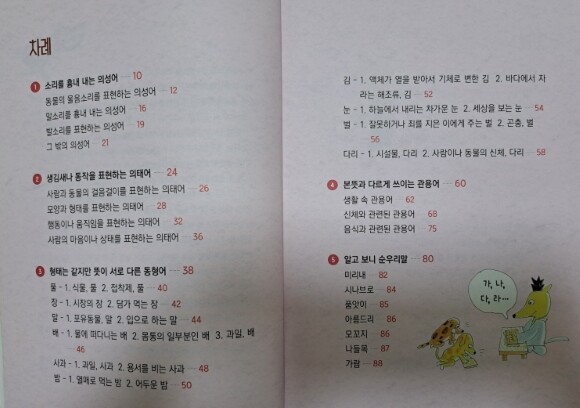 차례
1 소리를 흉내 내는 의성어 ― 10
동물의 울음소리를 표현하는 의성어 ― 12
말소리를 흉내 내는 의성어 ― 16
발소리를 표현하는 의성어 ― 19
그 밖의 의성어 ― 21
2 생김새나 동작을 표현하는 의태어 ― 24
사람과 동물의 걸음걸이를 표현하는 의태어 ― 26
모양과 형태를 표현하는 의태어 ― 28
행동이나 움직임을 표현하는 의태어 ― 32
사람의 마음이나 상태를 표현하는 의태어 ― 36
3 형태는 같지만 뜻이 서로 다른 동형어 ― 38
풀 - 1. 식물, 풀 2. 접착제, 풀 ― 40
장 - 1. 시장의 장 2. 담가 먹는 장 ― 42
말 - 1. 포유동물, 말 2. 입으로 하는 말 ― 44
배 - 1. 물에 떠다니는 배 2. 몸통의 일부분인 배 3. 과일, 배
― 46
사과 - 1. 과일, 사과 2. 용서를 비는 사과 ― 48
밤 - 1. 열매로 먹는 밤 2. 어두운 밤 ― 50
김 - 1. 액체가 열을 받아서 기체로 변한 김 2. 바다에서 자
라는 해조류, 김 ― 52
눈 - 1. 하늘에서 내리는 차가운 눈 2. 세상을 보는 눈 ― 54
벌 - 1. 잘못하거나 죄를 지은 이에게 주는 벌 2. 곤충, 벌
― 56
다리 - 1. 시설물, 다리 2. 사람이나 동물의 신체, 다리 ― 58
4 본뜻과 다르게 쓰이는 관용어 ― 60
생활 속 관용어 ― 62
신체와 관련된 관용어 ― 68
음식과 관련된 관용어 ― 75
5 알고 보니 순우리말 ― 80
미리내 ― 82
시나브로 ― 84
품앗이 ― 85
아름드리 ― 86
모꼬지 ― 86
나들목 ― 87
가람 ― 88
가, 나,
다, 라…